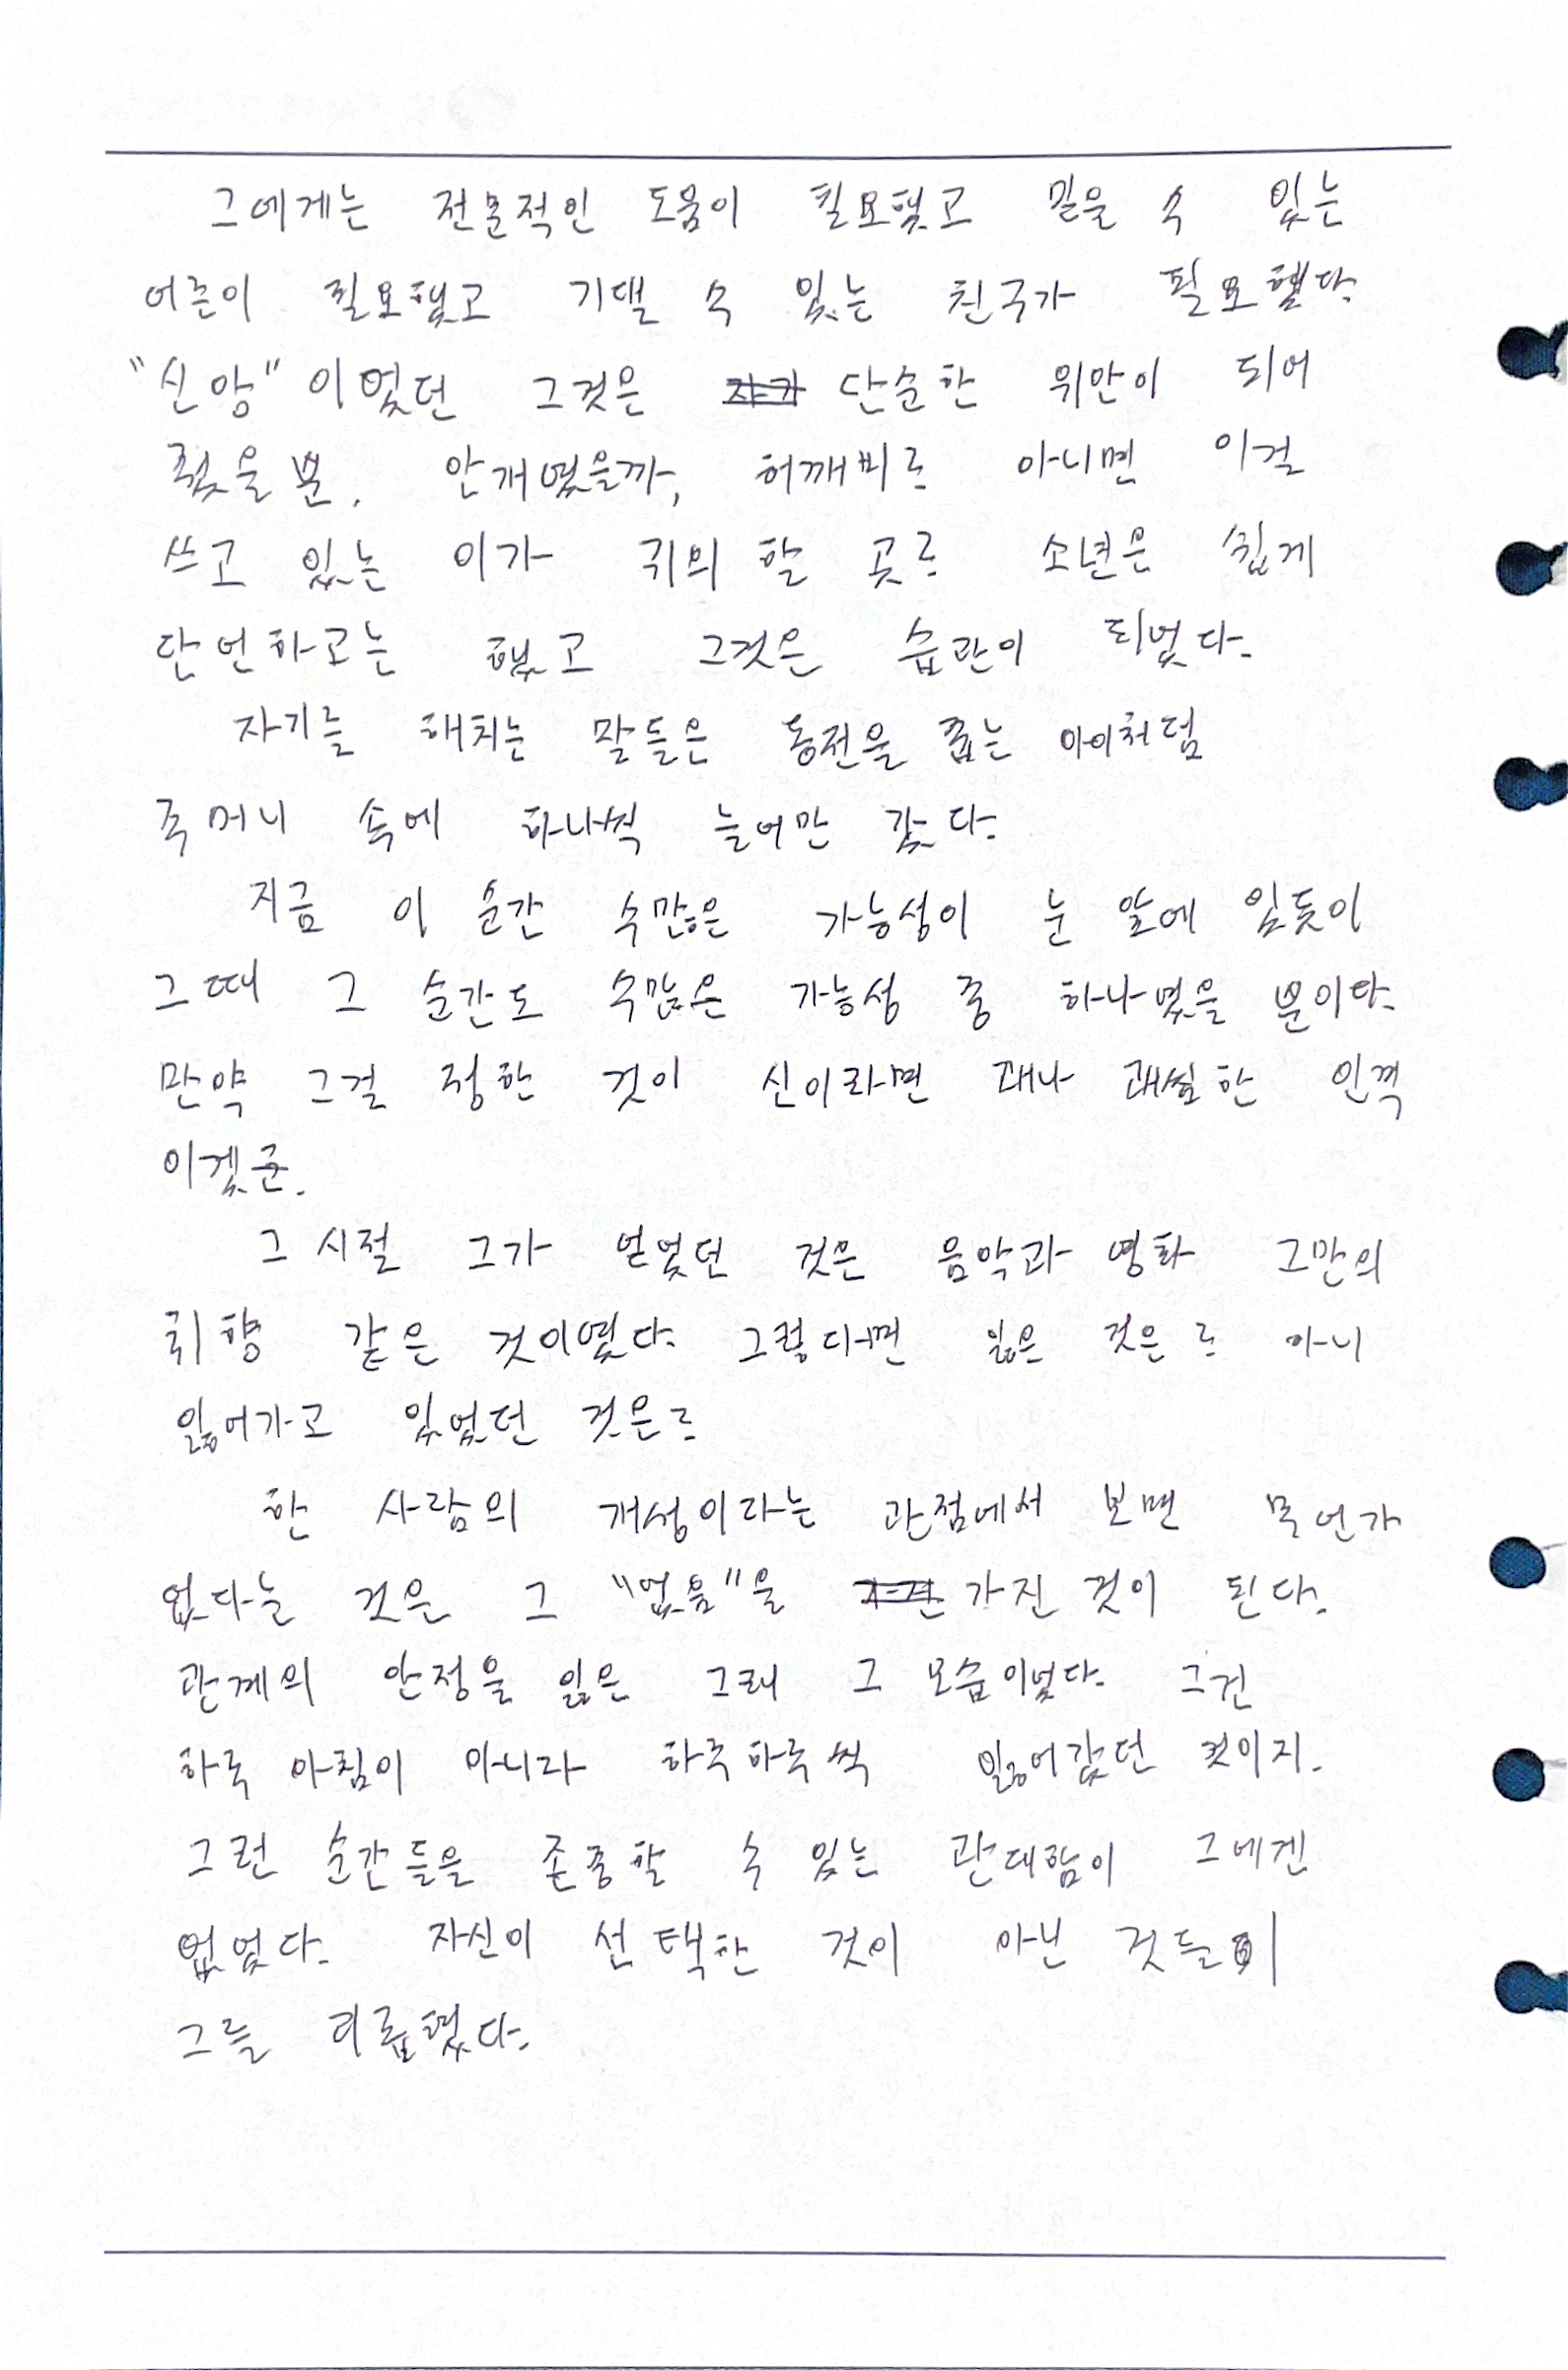 그에게는 전문적인 도움이 필요했고 믿을 수 있는
어른이 필요했고 기댈 수 있는 친구가 필요했다.
"신앙"이었던 그것은 단순한 위안이 되어
줬을 뿐. 안개였을까, 허깨비 아니면 이걸
쓰고 있는 이가 귀의 할 곳 소년은 쉽게
단언하고는 했고 그것은 습관이 되었다.
자기를 해치는 말들은 동전을 줍는 아이처럼
주머니 속에 하나씩 늘어만 갔다.
지금 이 순간 수많은 가능성이 눈 앞에 있듯이
그때 그 순간도 수많은 가능성 중 하나였을 뿐이다.
만약 그걸 정한 것이 신이라면 꽤나 괘씸한 인격
이겠군.
그 시절 그가 얻었던 것은 음악과 영화 그만의
취향 같은 것이였다. 그렇다면 잃은 것은? 아니
잃어가고 있었던 것은?
한 사람의 개성이라는 관점에서 보면 무언가
없다는 것은 그 "없음"을 가진 것이 된다.
관계의 안정을 잃은 그래 그 모습이었다. 그건
하루 아침이 아니라 하루하루씩 잃어갔던 것이지.
그런 순간들을 존중할 수 있는 관대함이 그에겐
없었다. 자신이 선택한 것이 아닌 것들이
그를 괴롭혔다.